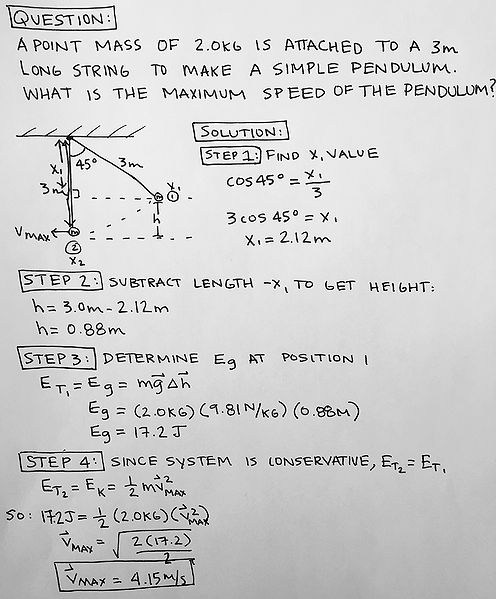 QUESTION:
A POINT MASS OF 2.0KG IS ATTACHED TO A 3m
LONG STRING TO MAKE A SIMPLE PENDULUM.
WHAT IS THE MAXIMUM SPEED OF THE PENDULUM?
SOLUTION:
STEP 1: FIND X₁ VALUE
cos45° = x₁/3
3cos45° = x₁
x₁ = 2.12m
45°
3m
x₁
3m
m
x₁
①
h
Vmax
m
②
x₂
STEP 2: SUBTRACT LENGTH -X₁ TO GET HEIGHT:
h = 3.0m - 2.12m
h = 0.88m
STEP 3: DETERMINE Eg AT POSITION 1
ET₁ = Eg = mg⃗Δh⃗
Eg = (2.0KG)(9.81N/KG)(0.88M)
Eg = 17.2J
STEP 4: SINCE SYSTEM IS CONSERVATIVE, ET₂ = ET₁
ET₂ = EK = 1/2 mv⃗²MAX
SO: 17.2J = 1/2 (2.0KG)(v⃗²MAX)
v⃗MAX = √(2(17.2)/2)
v⃗MAX = 4.15M/S